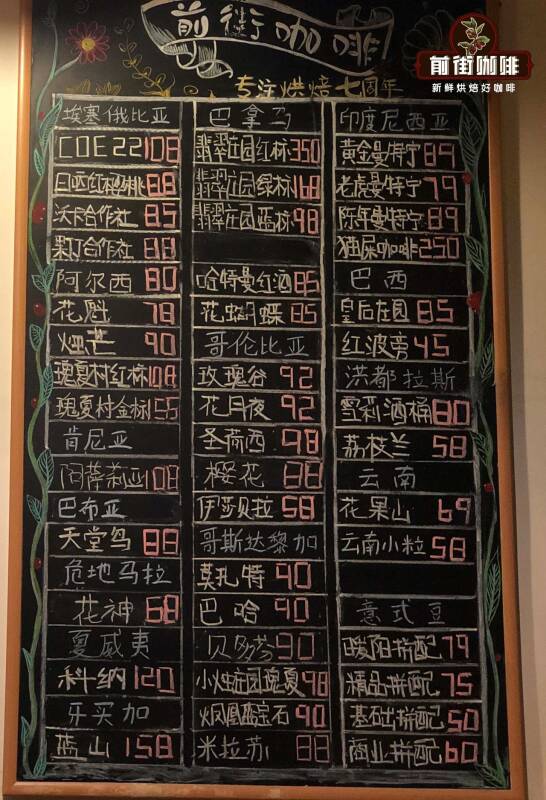 前街咖啡
专注烘焙七周年
前街咖啡
新鲜烘焙好咖啡
埃塞俄比亚
COE22 108
日晒红樱桃 88
沃卡合作社 85
果丁合作社 88
阿尔西 80
花魁 78
烟芒 90
瑰夏村红标 108
瑰夏村金标 155
肯尼亚
阿萨莉亚 108
巴布亚
天堂鸟 88
危地马拉
花神 68
夏威夷
科纳 120
牙买加
蓝山 158
巴拿马
翡翠庄园红标 350
翡翠庄园绿标 168
翡翠庄园蓝标 98
哈特曼红酒 85
花蝴蝶 85
哥伦比亚
玫瑰谷 92
花月夜 92
圣荷西 98
樱花 88
伊莎贝拉 58
哥斯达黎加
莫扎特 90
巴哈 90
贝多芬 90
小烛庄园瑰夏 98
火凤凰宝石 90
米拉苏 88
印度尼西亚
黄金曼特宁 89
老虎曼特宁 79
陈年曼特宁 89
猫屎咖啡 250
巴西
皇后庄园 85
红波旁 45
洪都拉斯
雪莉酒桶 80
荔枝兰 58
云南
花果山 69
云南小粒 58
意式豆
暖阳拼配 79
精品拼配 75
基础拼配 50
商业拼配 60